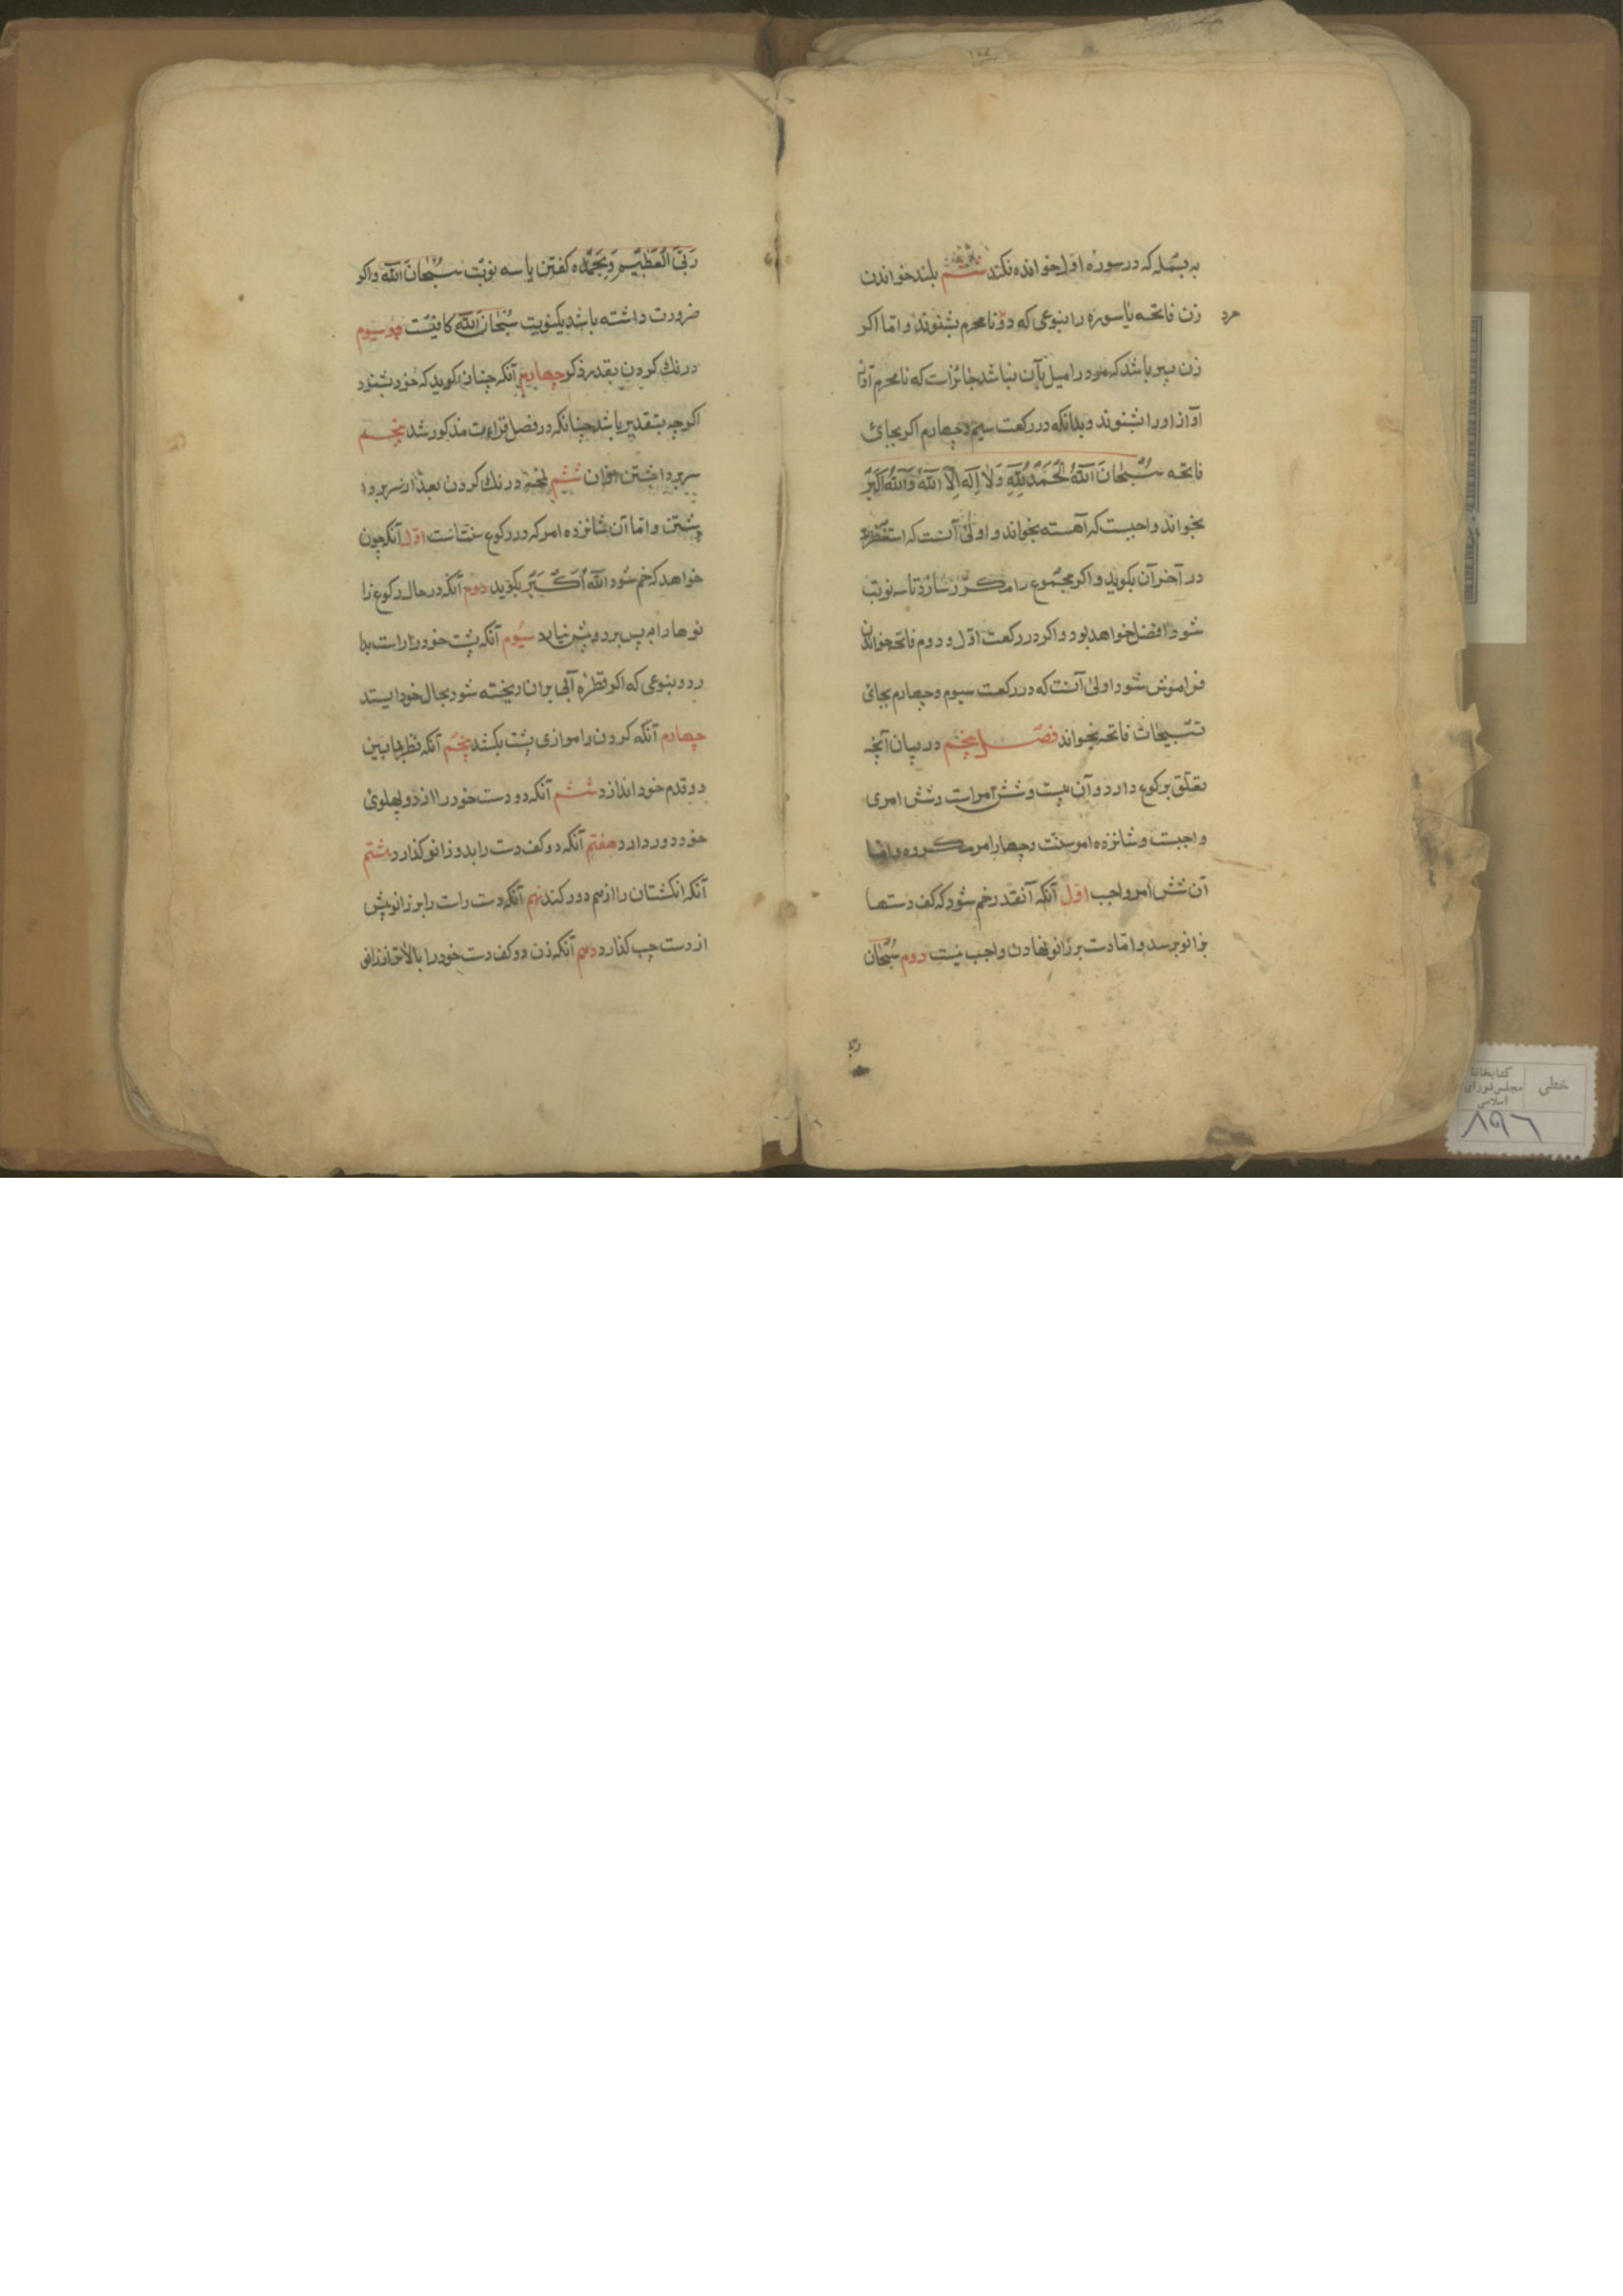 به بسمله که در سوره اول خوانده نکند ششم بلند خواندن
زن فاتحه یا سوره را بنوعی که دو نامحرم بشنوند و اما اکر
مرد
زن پیر باشد که مرد را میل بآن نباشد جائز است که نامحرم
آواز او را بشنوند و بدانکه در رکعت سیم و چهارم اکر بجای
فاتحه سُبْحَانَ اللّٰهِ الْحَمْدُ لِلّٰهِ وَلَا اِلَهَ اِلَّا اللّٰهُ وَاللّٰهُ اَکْبَرُ
بخواند واجبست که آهسته بخواند و اولی آنست که استغفار
در آخر آن بکوید و اکر مجموع را مکرّر سازد تا سه نوبت
شود افضل خواهد بود و اکر در رکعت اوّل و دوم فاتحه خواندن
فراموش شود اولی آنست که در رکعت سیوم و چهارم بجای
تسبیحات فاتحه بخواند فصل پنجم در بیان آنچه
تعلّق برکوع دارد و آن بیست و شش امر است و شش امری
واجبست و شانزده امر سنّت و چهار امر مکروه و اما
آن شش امر واجب اوّل آنکه آنقدر خم شود که کف دستها
بزانو برسد و اما دست بر زانو نهادن واجب نیست دوم سُبْحَان
رَبِّیَ الْعَظِیْمِ وَبِحَمْدِه کفتن یا سه نوبت سُبْحَانَ اللّٰه و اکر
ضرورت داشته باشد یکنوبت سُبْحَانَ اللّٰه کافیست سیوم
درنك کردن بقدر ذکر چهارم آنکه چنان بکوید که خود بشنود
اکرچه بتقدیر باشد چنانکه در فصل قراءت مذکور شد پنجم
سر برداشتن از آن ششم لمحه درنك کردن بعد از سر بردا
شتن و اما آن شانزده امر که در رکوع سنّتست اوّل آنکه چون
خواهد که خم شود اَللّٰهُ اَکْبَر بکوید دوم آنکه در حال رکوع زا
نوها را به پس برد و پیش نیارد سیوم آنکه پشت خود را راست بدا
رد و بنوعی که اکر قطره آبی بران ریخته شود بحال خود ایستد
چهارم آنکه کردن را موازی پشت بکشد پنجم آنکه نظر بمابین
دو قدم خود اندازد ششم آنکه دو دست خود را از دو پهلوی
خود دور دارد هفتم آنکه دو کف دست را بدو زانو کذارد هشتم
آنکه انکشتان را از هم دور کند نهم آنکه دست راست را بر زانو پیش
از دست چپ کذارد دهم آنکه زن دو کف دست خود را بالاتر از زانو
خطی
کتابخانه
مجلس شورای
اسلامی
۸۹۶